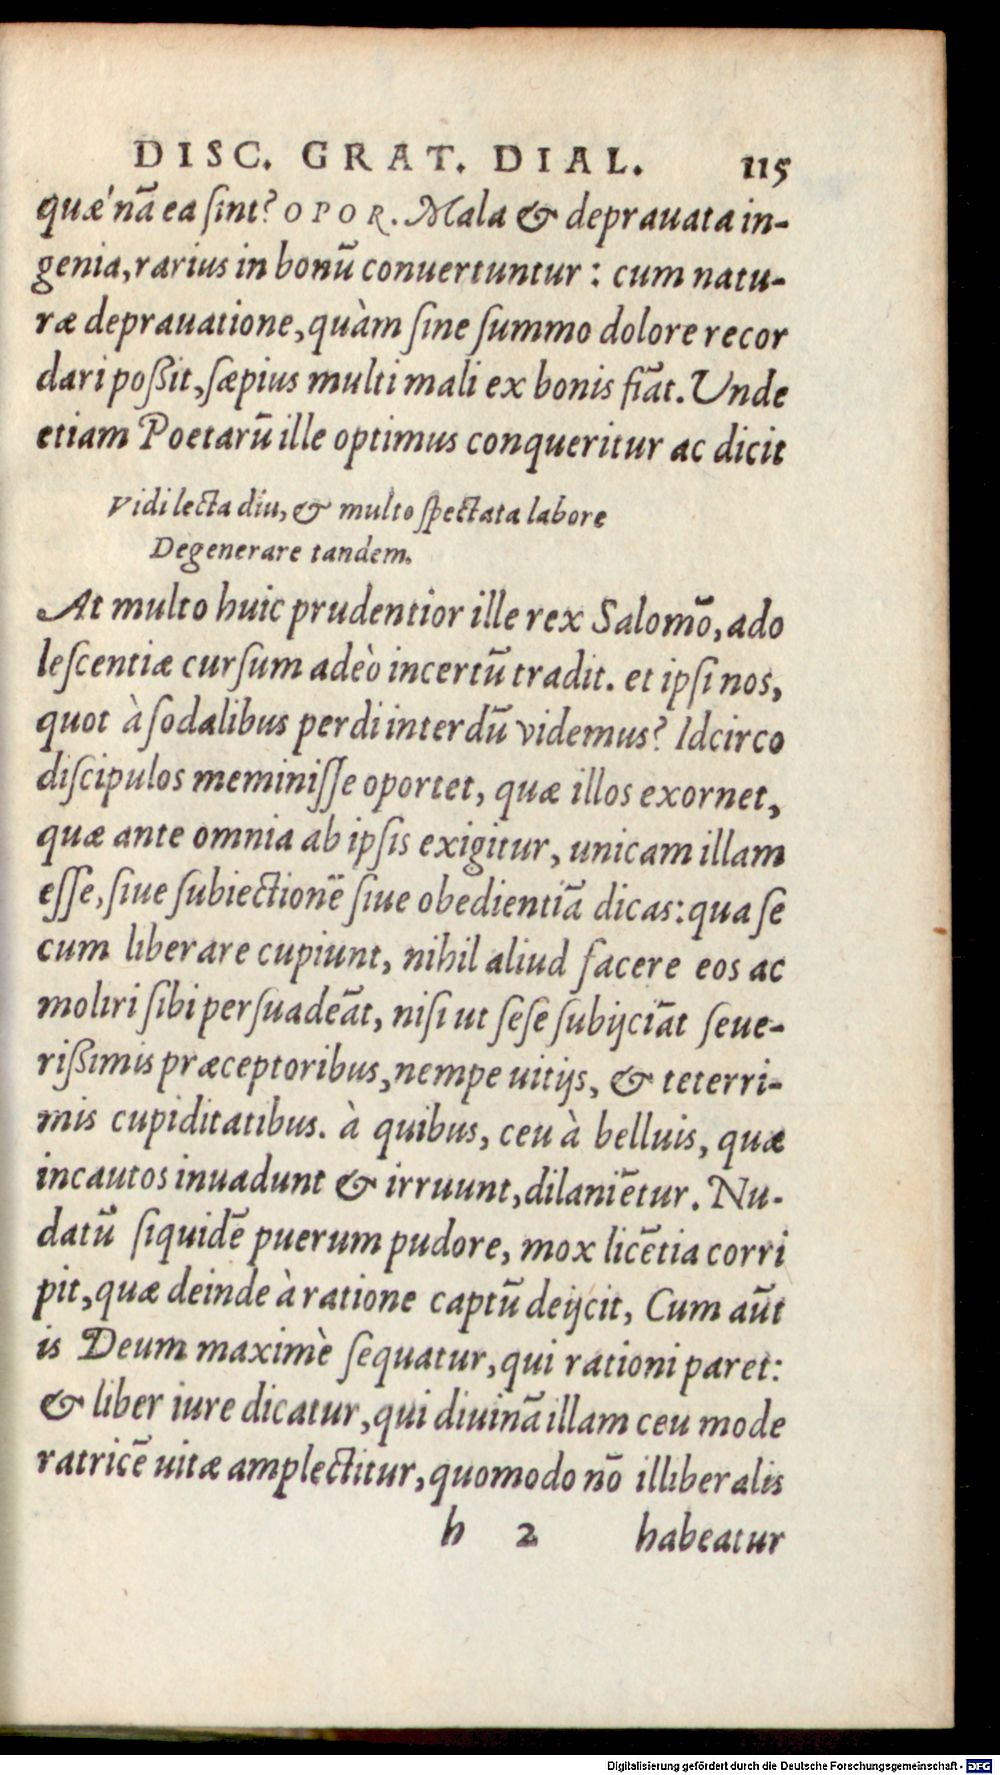 DISC. GRAT. DIAL. 115
quæ'nā ea ſint? OPOR. Mala & deprauata in-
genia, rarius in bonū conuertuntur: cum natu-
ræ deprauatione, quàm ſine ſummo dolore recor
dari poßit, ſæpius multi mali ex bonis fiāt. Unde
etiam Poetarū ille optimus conqueritur ac dicit
Vidi lecta diu, & multo ſpectata labore
Degenerare tandem.
At multo huic prudentior ille rex Salomō, ado
leſcentiæ curſum adeò incertū tradit. et ipſi nos,
quot à ſodalibus perdi interdū videmus? Idcirco
diſcipulos meminiſſe oportet, quæ illos exornet,
quæ ante omnia ab ipſis exigitur, unicam illam
eſſe, ſiue ſubiectionē ſiue obedientiā dicas: qua ſe
cum liberare cupiunt, nihil aliud facere eos ac
moliri ſibi perſuadeāt, niſi ut ſeſe ſubijciāt ſeue-
rißimis præceptoribus, nempe uitijs, & teterri-
mis cupiditatibus. à quibus, ceu à belluis, quæ
incautos inuadunt & irruunt, dilaniētur. Nu-
datū ſiquidē puerum pudore, mox licētia corri
pit, quæ deinde à ratione captū deijcit, Cum aūt
is Deum maximè ſequatur, qui rationi paret:
& liber iure dicatur, qui diuinā illam ceu mode
ratricē uitæ amplectitur, quomodo nō illiberalis
h 2 habeatur
Digitalisierung gefördert durch die Deutsche Forschungsgemeinschaft - DFG